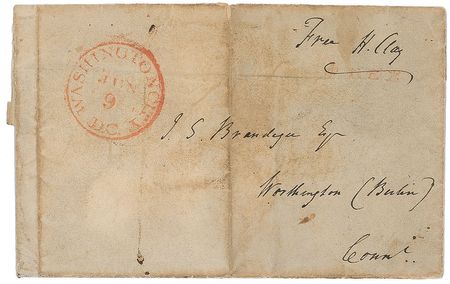 Free H. Clay
WASHINGTON CITY
JUN
9
D.C
J. S. Brandegee Esqr
Worthington (Berlin)
Connt.